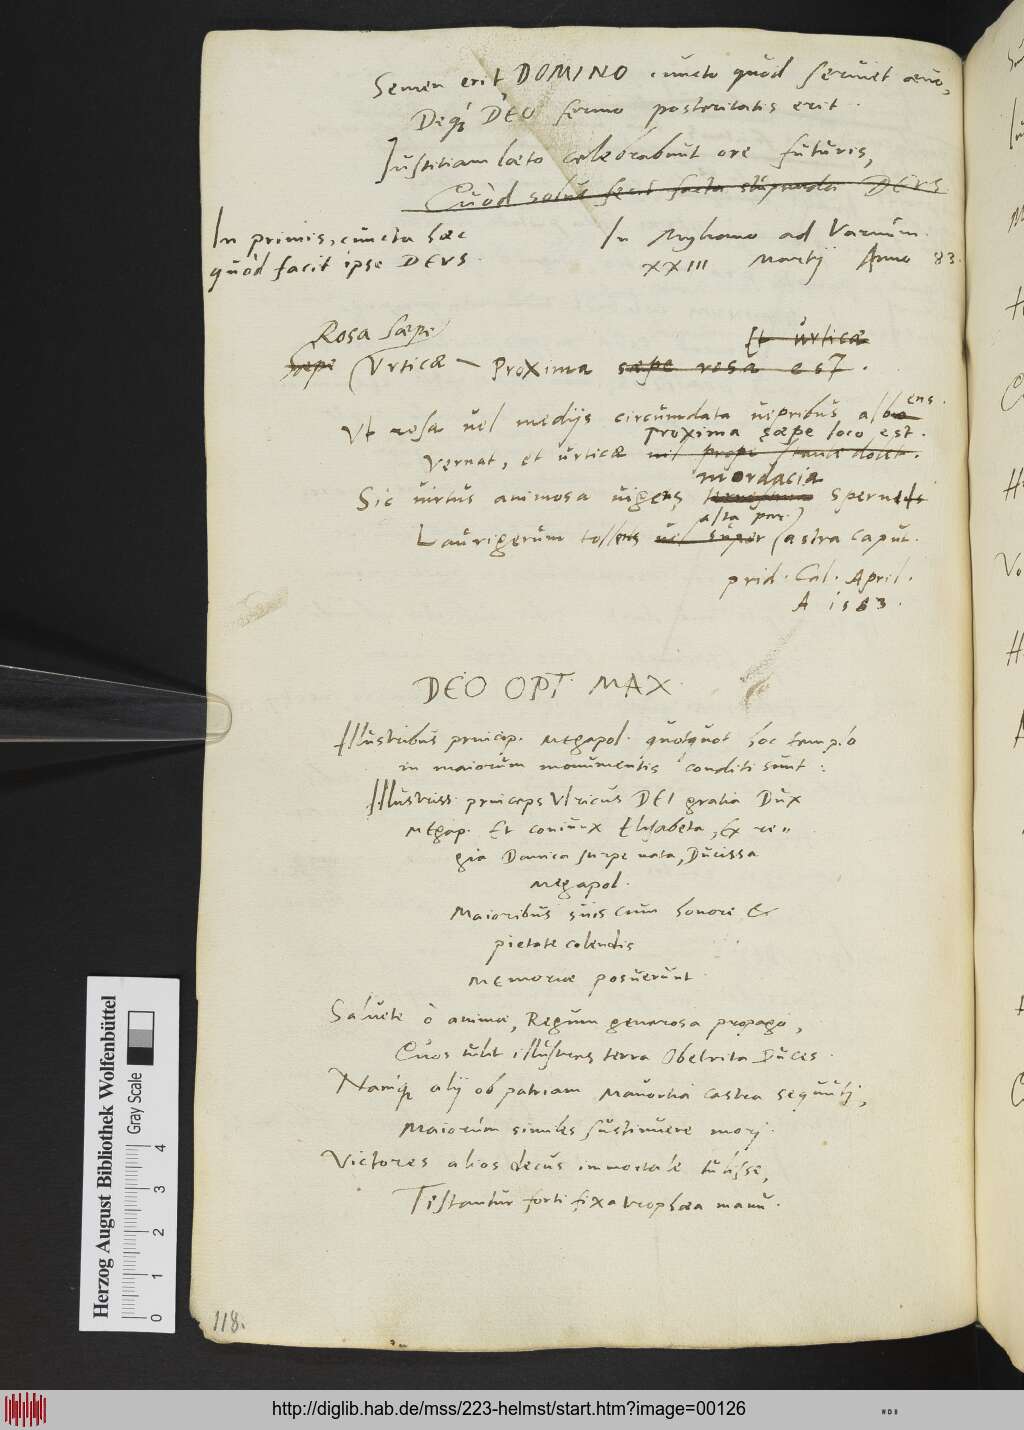 Semen erit DOMINO cuncto quòd serviet aevo,
Deq́; DEO sermo posteritatis erit.
Justitiam laeto celebrabunt ore futuris,
Quòd solus fecit facta stupenda DEVS
In primis, cuncta haec
quòd facit ipse DEVS.
In ad Varnum.
XXIII Martij Anno 83.
Rosa saepe
saepe Vrticae Proxima saepe rosa est.
Et urticae
Vt rosa vel medijs circumdata vepribus albens.
Proxima saepe loco est.
Vernat, et urticae vil prope stante dolet.
mordacia
Sic virtus animosa vigens spernens
alta per
Laurigerum tollens vel super astra caput.
prid. Cal. April.
A 1583.
DEO OPT MAX
Illustribus princip. Megapol. quotquot hoc templo
in maiorum monumentis conditi sunt:
Illustriss. princeps Vlricus DEI gratia Dux
Megap. Et coniunx Elisabeta, Ex re„
gia Danica stirpe nata, Ducissa
Megapol.
Maioribus suis cum honore &
pietate colendis
Memoriae posuerunt.
Salvete ò animae, Regum generosa propago,
Quos tulit illustres terra Obetrita Duces.
Namq́; alij ob patriam Mavortia castra sequuti,
Maiorum similes sustinuere mori.
Victores alios decus immortale tulisse,
Testantur forti fixa trophaea manu.
118.
Herzog August Bibliothek Wolfenbüttel
Gray Scale
0 1 2 3 4
http://diglib.hab.de/mss/223-helmst/start.htm?image=00126